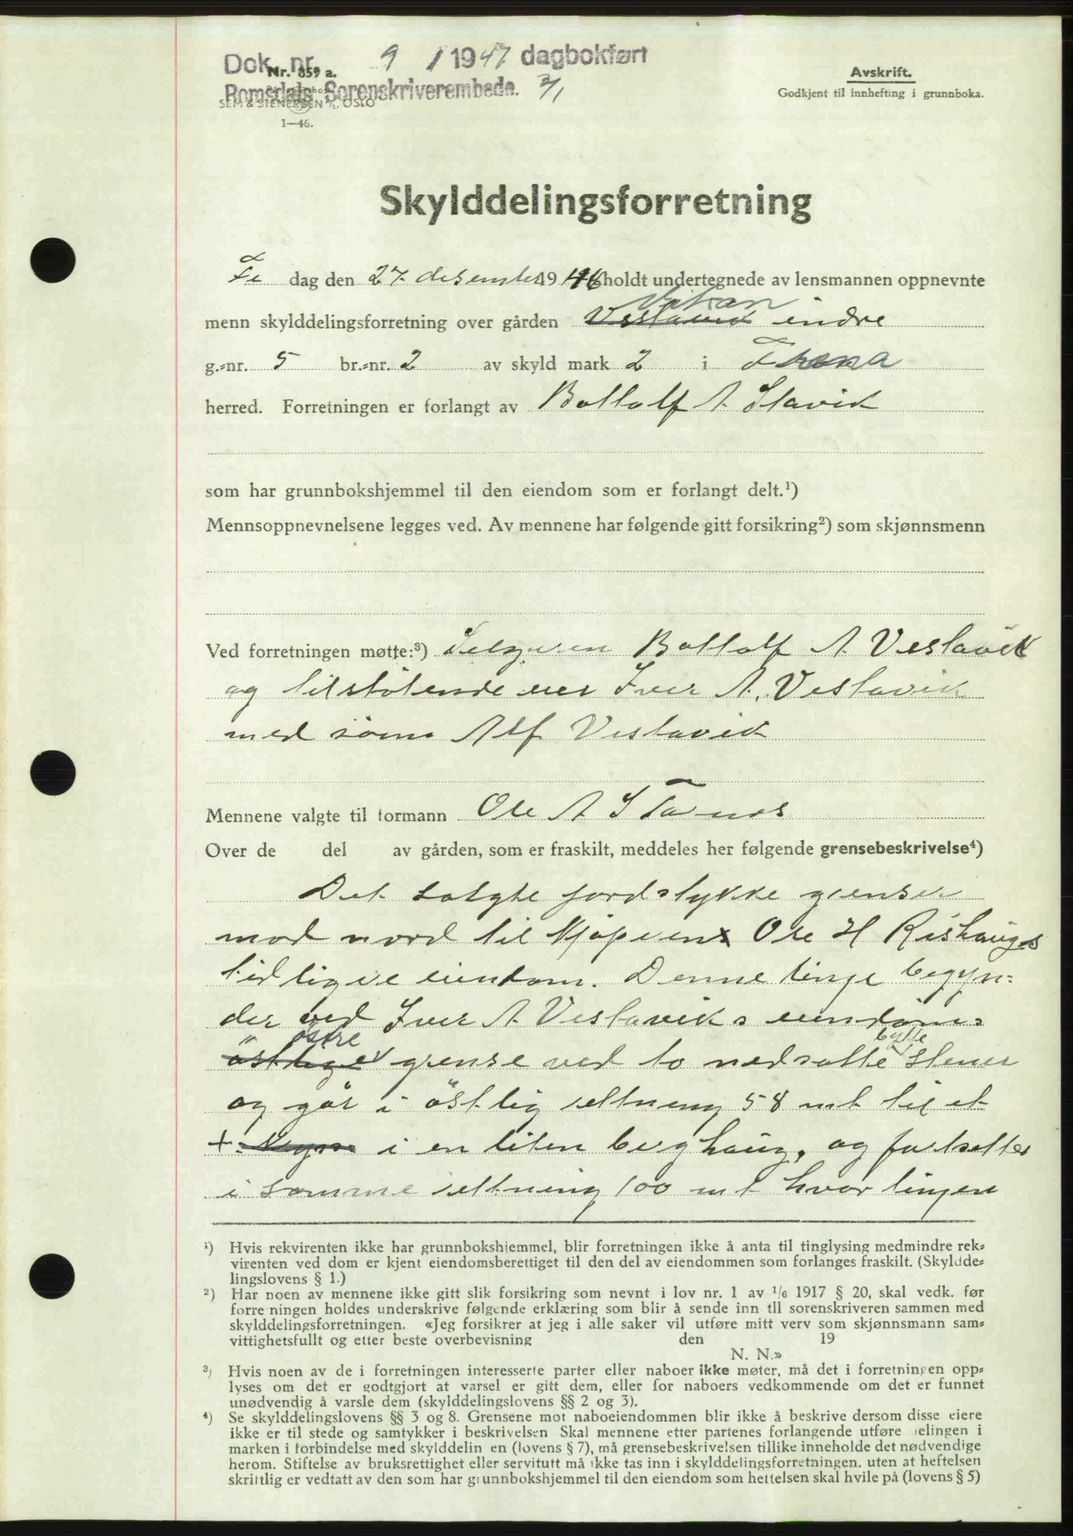 Dok. nr. 9 / 1947 dagbokført
Nr. 859 a.
Romsdals Sorenskriverembede. 3/1
SEM & STENERSEN A/S, OSLO
1—46.
Avskrift.
Godkjent til innhefting i grunnboka.
Skylddelingsforretning
Fre dag den 27. desember 1946 holdt undertegnede av lensmannen oppnevnte
menn skylddelingsforretning over gården Vestavik indre
g.=nr. 5 br.=nr. 2 av skyld mark 2 i Fræna
herred. Forretningen er forlangt av Bottolf A. Slavik
som har grunnbokshjemmel til den eiendom som er forlangt delt.¹)
Mennsoppnevnelsene legges ved. Av mennene har følgende gitt forsikring²) som skjønnsmenn
Ved forretningen møtte:³) Selgeren Bottolf A Vestavik
og tilstøtende eier Iver A. Vestavik
med sønn Alf Vestavik
Mennene valgte til formann Ole A Stavnes
Over de del av gården, som er fraskilt, meddeles her følgende grensebeskrivelse⁴)
Det solgte jordstykke grenser
mod nord til kjøperens Ole H Rishaugs
tidligere eiendom. Denne linje begyn=
der ved Iver A Vestaviks eiendoms
östlige östre grense ved to nedsatte bytte stener
og går i östlig retning 58 mt til et
+ i en liten berghaug, og fortsetter
i samme retning 100 mt hvor linjen
¹) Hvis rekvirenten ikke har grunnbokshjemmel, blir forretningen ikke å anta til tinglysing medmindre rek=
virenten ved dom er kjent eiendomsberettiget til den del av eiendommen som forlanges fraskilt. (Skyldde=
lingslovens § 1.)
²) Har noen av mennene ikke gitt slik forsikring som nevnt i lov nr. 1 av 1/6 1917 § 20, skal vedk. før
forretningen holdes underskrive følgende erklæring som blir å sende inn til sorenskriveren sammen med
skylddelingsforretningen. «Jeg forsikrer at jeg i alle saker vil utføre mitt verv som skjønnsmann sam=
vittighetsfullt og etter beste overbevisning den 19
N. N.»
³) Hvis noen av de i forretningen interesserte parter eller naboer ikke møter, må det i forretningen opp=
lyses om det er godtgjort at varsel er gitt dem, eller for naboers vedkommende om det er funnet
unødvendig å varsle dem (skylddelingslovens §§ 2 og 3).
⁴) Se skylddelingslovens §§ 3 og 8. Grensene mot naboeiendommen blir ikke å beskrive dersom disse eiere
ikke er til stede og samtykker i beskrivelsen Skal mennene etter partenes forlangende utføre delingen i
marken i forbindelse med skylddelingen (lovens § 7), må grensebeskrivelsen tillike inneholde det nødvendige
herom. Stiftelse av bruksrettighet eller servitutt må ikke tas inn i skylddelingsforretningen. uten at heftelsen
skriftlig er vedtatt av den som har grunnbokshjemmel til den eiendom som heftelsen skal hvile på (lovens § 5)